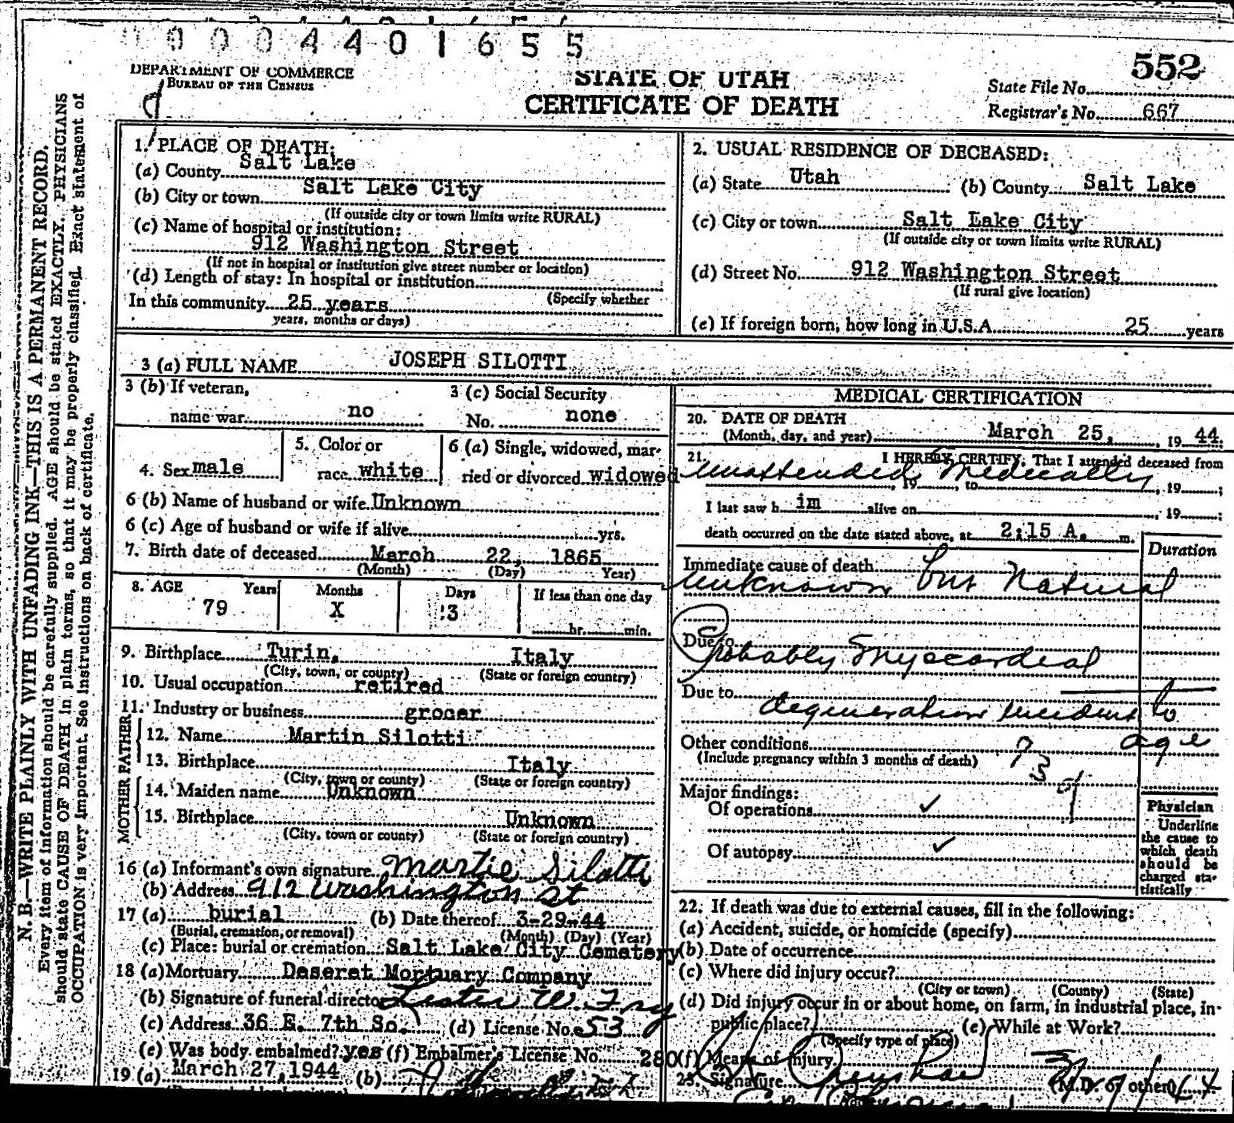 0 0 0 4 4 0 1 6 5 5
DEPARTMENT OF COMMERCE
BUREAU OF THE CENSUS
STATE OF UTAH
CERTIFICATE OF DEATH
552
State File No.
Registrar's No. 667
N. B.—WRITE PLAINLY WITH UNFADING INK—THIS IS A PERMANENT RECORD.
Every item of information should be carefully supplied. AGE should be stated EXACTLY. PHYSICIANS
should state CAUSE OF DEATH in plain terms, so that it may be properly classified. Exact statement of
OCCUPATION is very important. See instructions on back of certificate.
1. PLACE OF DEATH:
(a) County Salt Lake
(b) City or town Salt Lake City
(If outside city or town limits write RURAL)
(c) Name of hospital or institution:
912 Washington Street
(If not in hospital or institution give street number or location)
(d) Length of stay: In hospital or institution
(Specify whether
In this community 25 years
years, months or days)
2. USUAL RESIDENCE OF DECEASED:
(a) State Utah (b) County Salt Lake
(c) City or town Salt Lake City
(If outside city or town limits write RURAL)
(d) Street No. 912 Washington Street
(If rural give location)
(e) If foreign born, how long in U.S.A. 25 years
3 (a) FULL NAME JOSEPH SILOTTI
3 (b) If veteran,
name war no
3 (c) Social Security
No. none
4. Sex male
5. Color or
race white
6 (a) Single, widowed, mar-
ried or divorced Widowed
6 (b) Name of husband or wife Unknown
6 (c) Age of husband or wife if alive yrs.
7. Birth date of deceased March 22, 1865
(Month) (Day) Year)
8. AGE Years Months Days If less than one day
79 X 3
hr. min.
9. Birthplace Turin, Italy
(City, town, or county) (State or foreign country)
10. Usual occupation retired
11. Industry or business grocer
FATHER
12. Name Martin Silotti
13. Birthplace Italy
(City, town or county) (State or foreign country)
MOTHER
14. Maiden name Unknown
15. Birthplace Unknown
(City, town or county) (State or foreign country)
16 (a) Informant's own signature Martie Silotti
(b) Address 912 Washington St
17 (a) burial (b) Date thereof 3-29-44
(Burial, cremation, or removal) (Month) (Day) (Year)
(c) Place: burial or cremation Salt Lake City Cemetery
18 (a) Mortuary Deseret Mortuary Company
(b) Signature of funeral director Lester W. Fry
(c) Address 36 E. 7th So. (d) License No. 53
(e) Was body embalmed? yes (f) Embalmer's License No. 280
19 (a) March 27, 1944 (b)
MEDICAL CERTIFICATION
20. DATE OF DEATH
(Month, day, and year) March 25, 1944
21. I HEREBY CERTIFY, That I attended deceased from
unattended Medically, 19 , to , 19 ;
I last saw h im alive on , 19 ;
death occurred on the date stated above, at 2:15 A. m.
Duration
Immediate cause of death
unknown but Natural
Due to
Probably Myocardial
Due to
degeneration incident to
age
Other conditions
(Include pregnancy within 3 months of death)
93 d
Major findings:
Of operations ✓
Of autopsy ✓
Physician
Underline
the cause to
which death
should be
charged sta-
tistically
22. If death was due to external causes, fill in the following:
(a) Accident, suicide, or homicide (specify)
(b) Date of occurrence
(c) Where did injury occur?
(City or town) (County) (State)
(d) Did injury occur in or about home, on farm, in industrial place, in
public place? (e) While at Work?
(Specify type of place)
(f) Means of injury
23. Signature (M.D. or other)